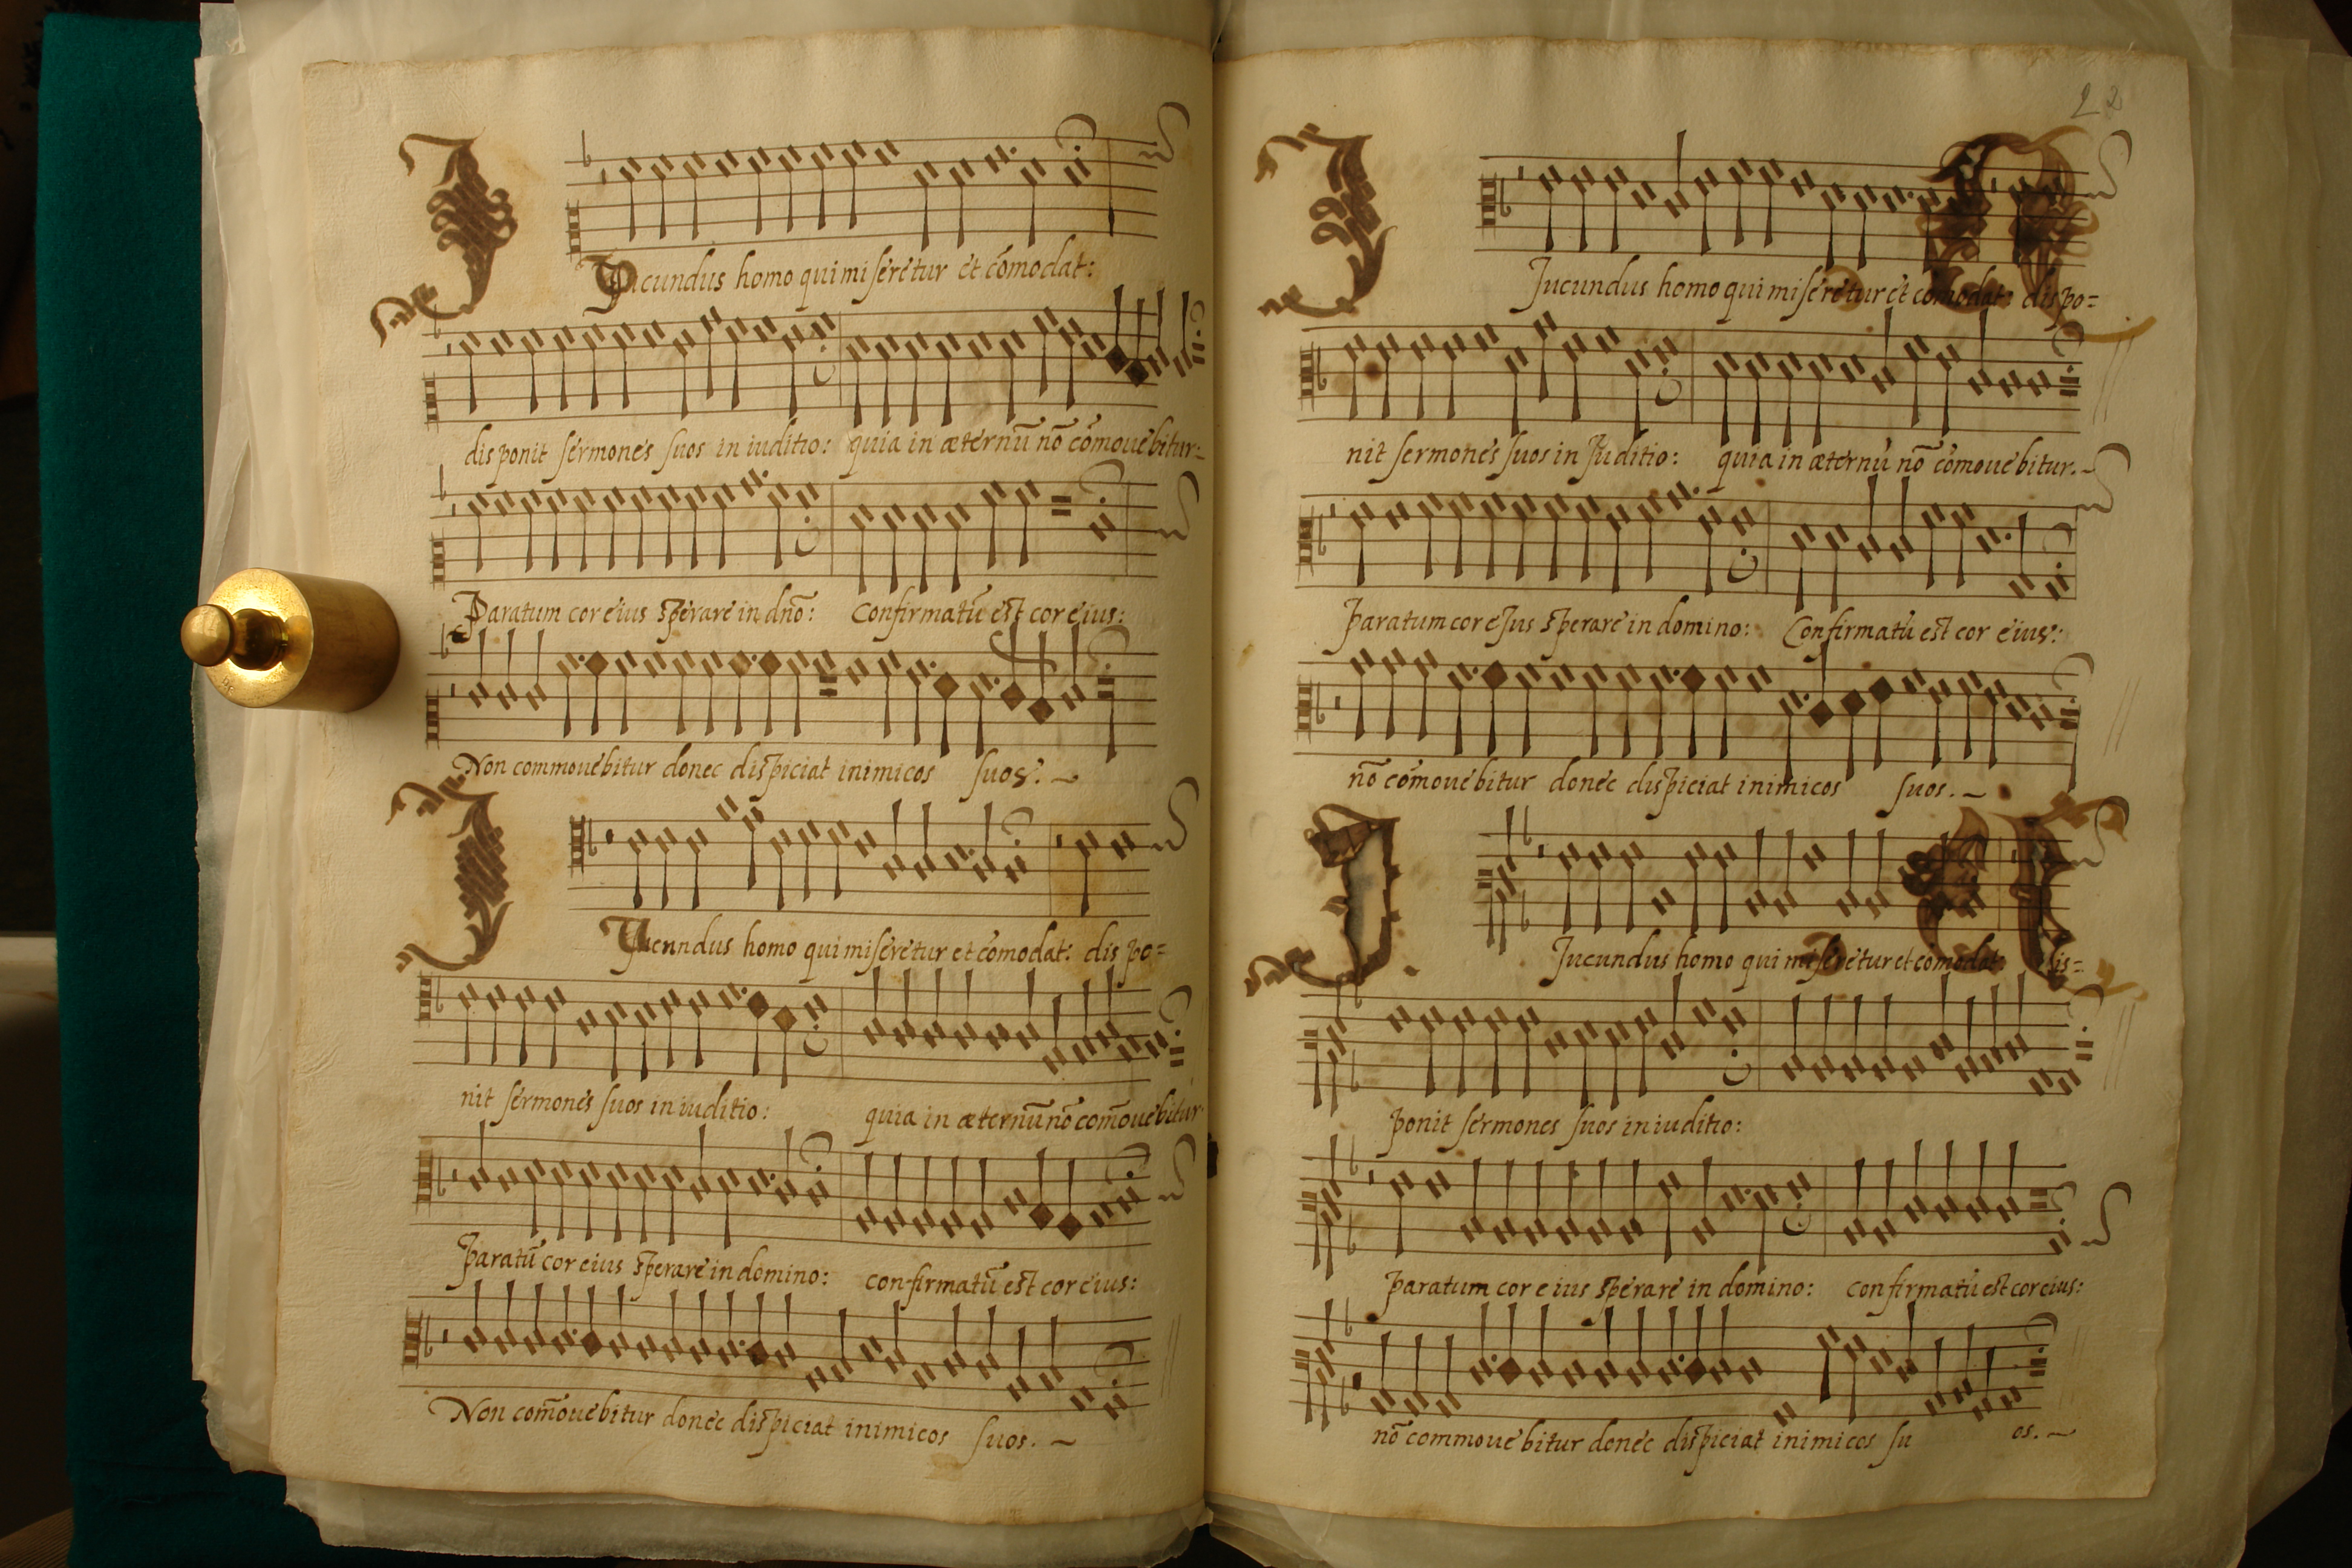 Jucundus homo qui miseretur et cōmodat:
disponit sermones suos in iuditio: quia in æternū nō cōmouebitur:
Paratum cor eius sperare in dnō: Confirmatū est cor eius:
Non commouebitur donec dispiciat inimicos suos: ~
Jucundus homo qui miseretur et cōmodat: dis po=
nit sermones suos in iuditio: quia in æternū nō com̄ouebitur
Paratū cor eius sperare in domino: confirmatū est cor eius:
Non com̄ouebitur donec dispiciat inimicos suos. ~
22
Jucundus homo qui miseretur et cōmodat: dispo=
nit sermones suos in Juditio: quia in æternū nō cōmouebitur. ~
Paratum cor eJus sperare in domino: Confirmatū est cor eius:
nō cōmouebitur donec dispiciat inimicos suos. ~
Jucundus homo qui miseretur et cōmodat: dis=
ponit sermones suos in iuditio:
Paratum cor eius sperare in domino: confirmatū est cor eius:
nō commouebitur donec dispiciat inimicos su os. ~